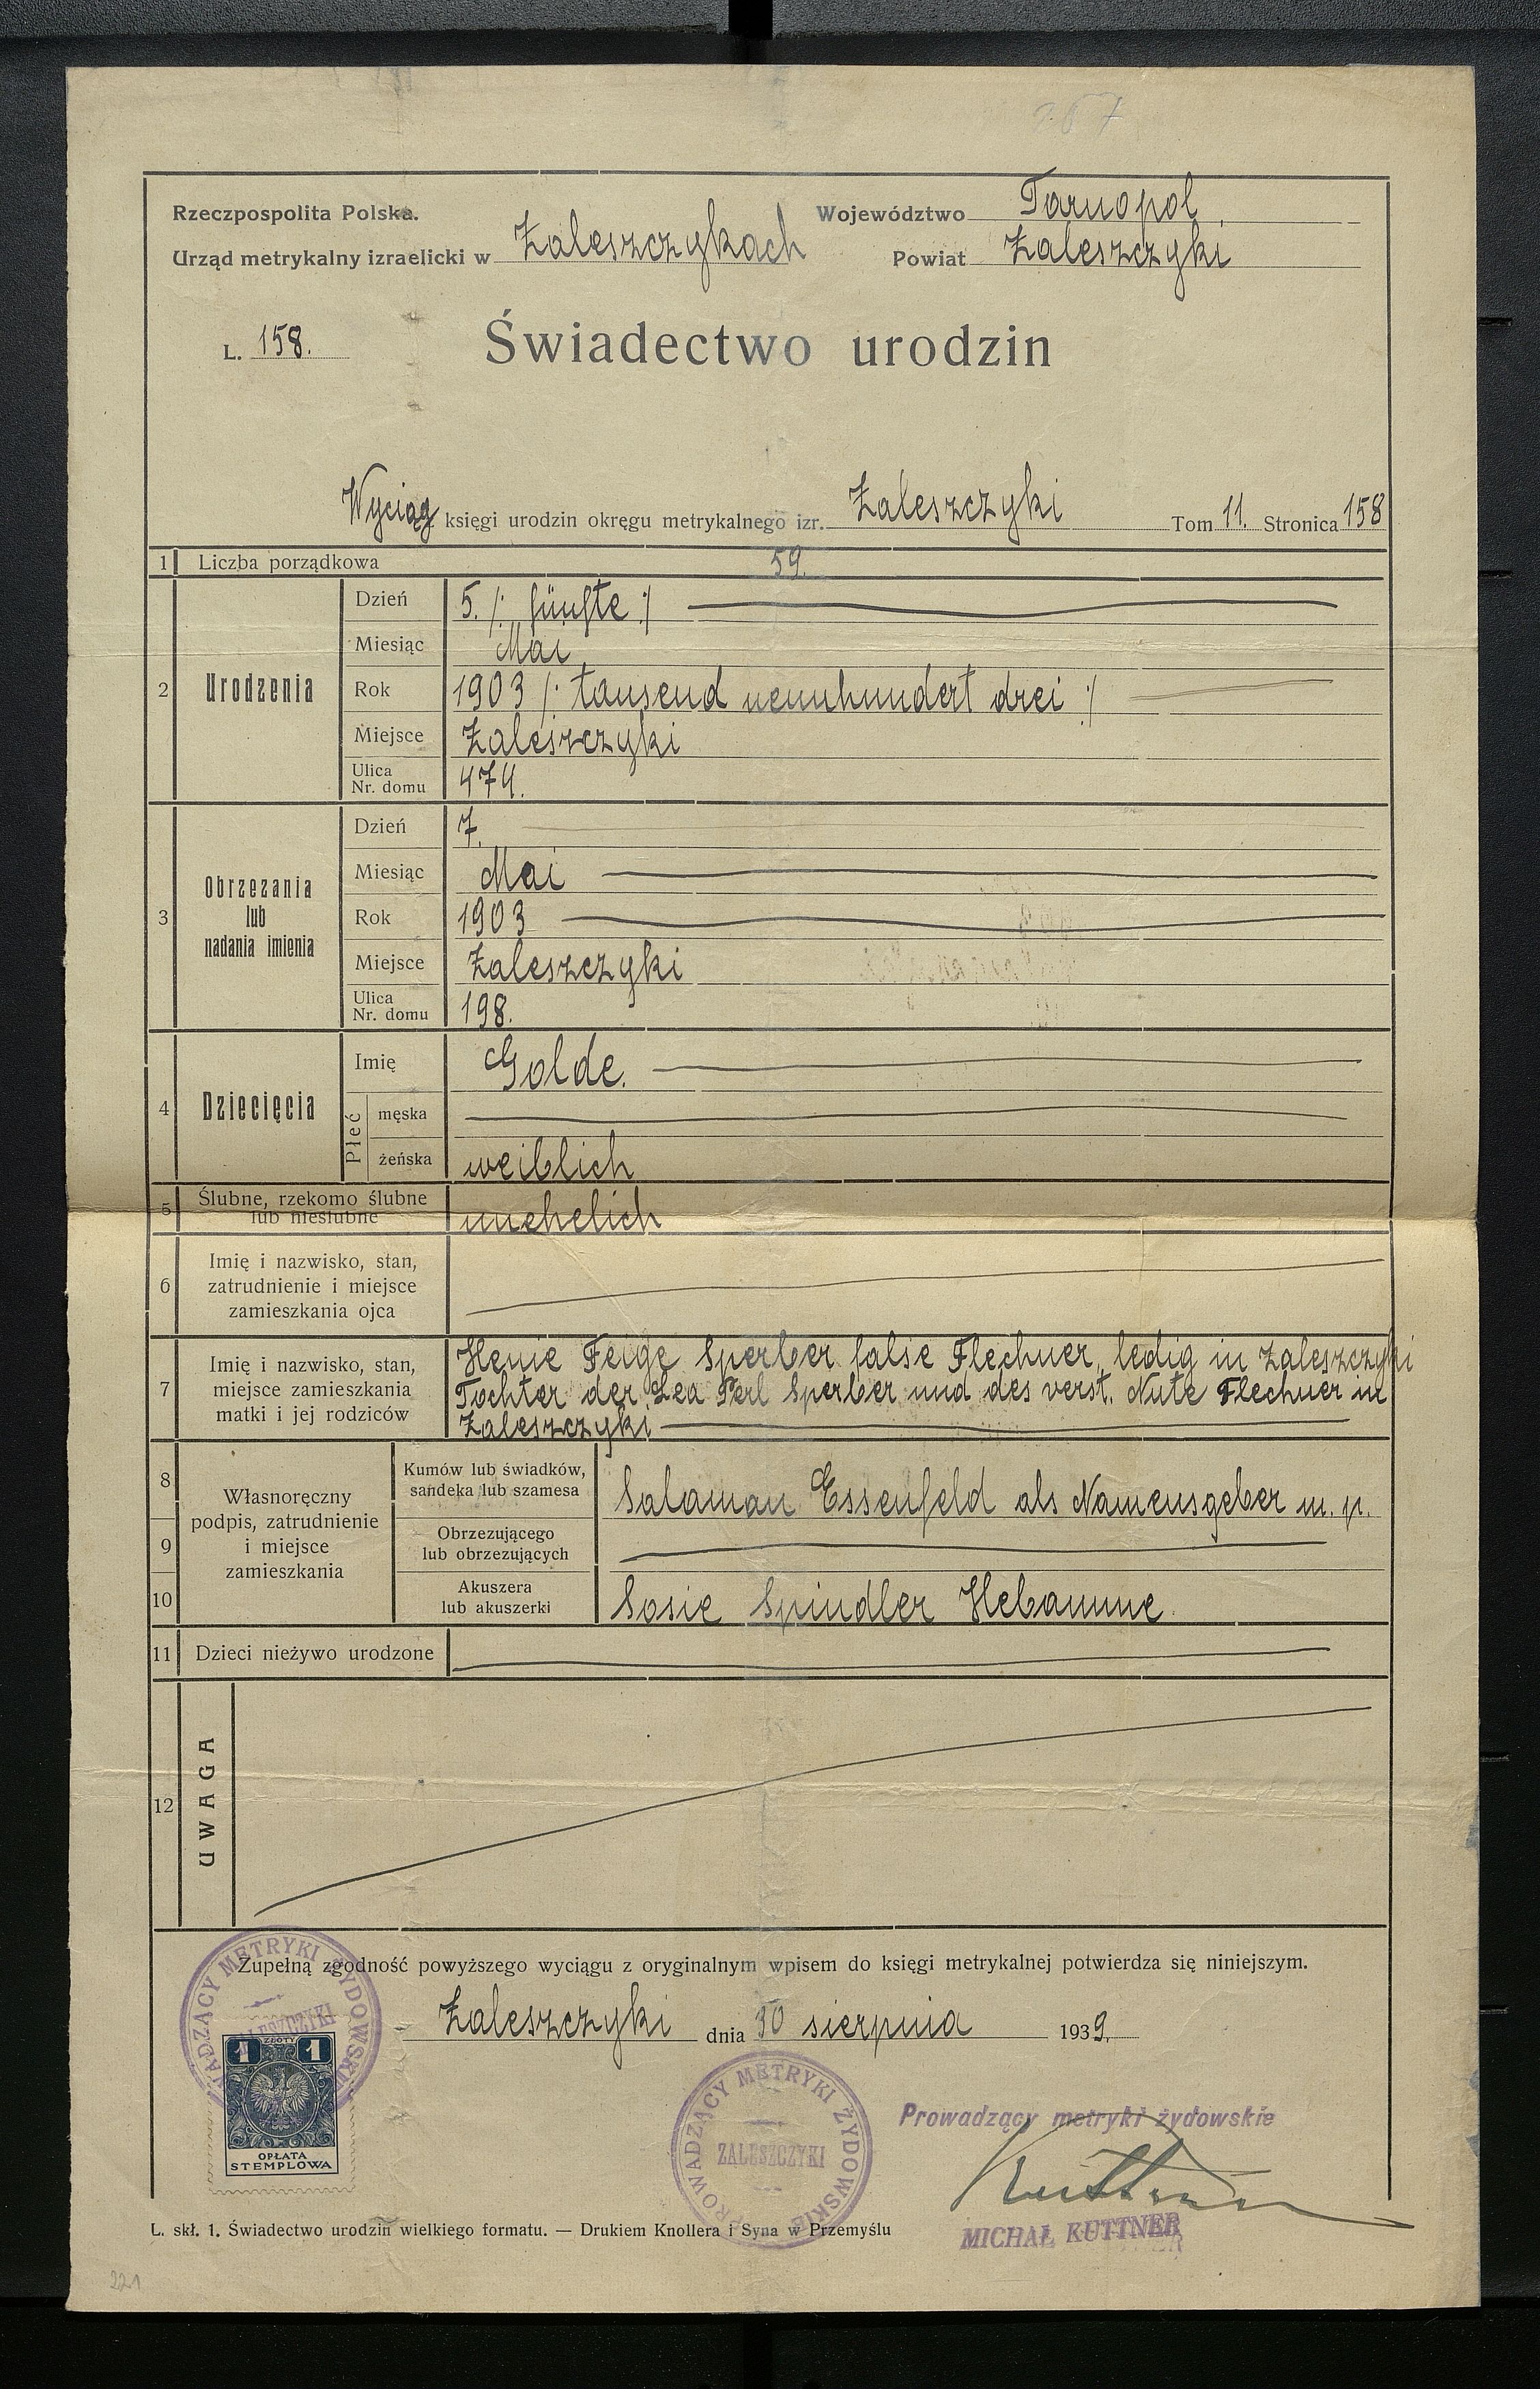 267
Rzeczpospolita Polska. Województwo Tarnopol
Urząd metrykalny izraelicki w Zaleszczykach Powiat Zaleszczyki
L. 158. Świadectwo urodzin
Wyciąg księgi urodzin okręgu metrykalnego izr. Zaleszczyki Tom 11. Stronica 158
1 Liczba porządkowa 59.
2 Urodzenia
Dzień 5. /: fünfte :/
Miesiąc Mai
Rok 1903 /: tausend neunhundert drei :/
Miejsce Zaleszczyki
Ulica
Nr. domu 474.
3 Obrzezania
lub
nadania imienia
Dzień 7.
Miesiąc Mai
Rok 1903
Miejsce Zaleszczyki
Ulica
Nr. domu 198.
4 Dziecięcia
Imię Golde.
Płeć
męska
żeńska weiblich
5 Ślubne, rzekomo ślubne
lub nieślubne unehelich
6 Imię i nazwisko, stan,
zatrudnienie i miejsce
zamieszkania ojca
7 Imię i nazwisko, stan,
miejsce zamieszkania
matki i jej rodziców
Henie Feige Sperber false Flechner, ledig in Zaleszczyki
Tochter der Lea Perl Sperber und des verst. Nute Flechner in
Zaleszczyki
Własnoręczny
podpis, zatrudnienie
i miejsce
zamieszkania
8 Kumów lub świadków,
sandeka lub szamesa Salaman Essenfeld als Namensgeber m. p.
9 Obrzezującego
lub obrzezujących
10 Akuszera
lub akuszerki Sosie Spindler Hebamme
11 Dzieci nieżywo urodzone
12 UWAGA
Zupełną zgodność powyższego wyciągu z oryginalnym wpisem do księgi metrykalnej potwierdza się niniejszym.
Zaleszczyki dnia 30 sierpnia 1939.
PROWADZĄCY METRYKI ŻYDOWSKIE
ZALESZCZYKI
1 ZŁOTY 1
OPŁATA
STEMPLOWA
PROWADZĄCY METRYKI ŻYDOWSKIE
ZALESZCZYKI
Prowadzący metryki żydowskie
Kuttner
MICHAŁ KUTTNER
L. skł. 1. Świadectwo urodzin wielkiego formatu. — Drukiem Knollera i Syna w Przemyślu
221